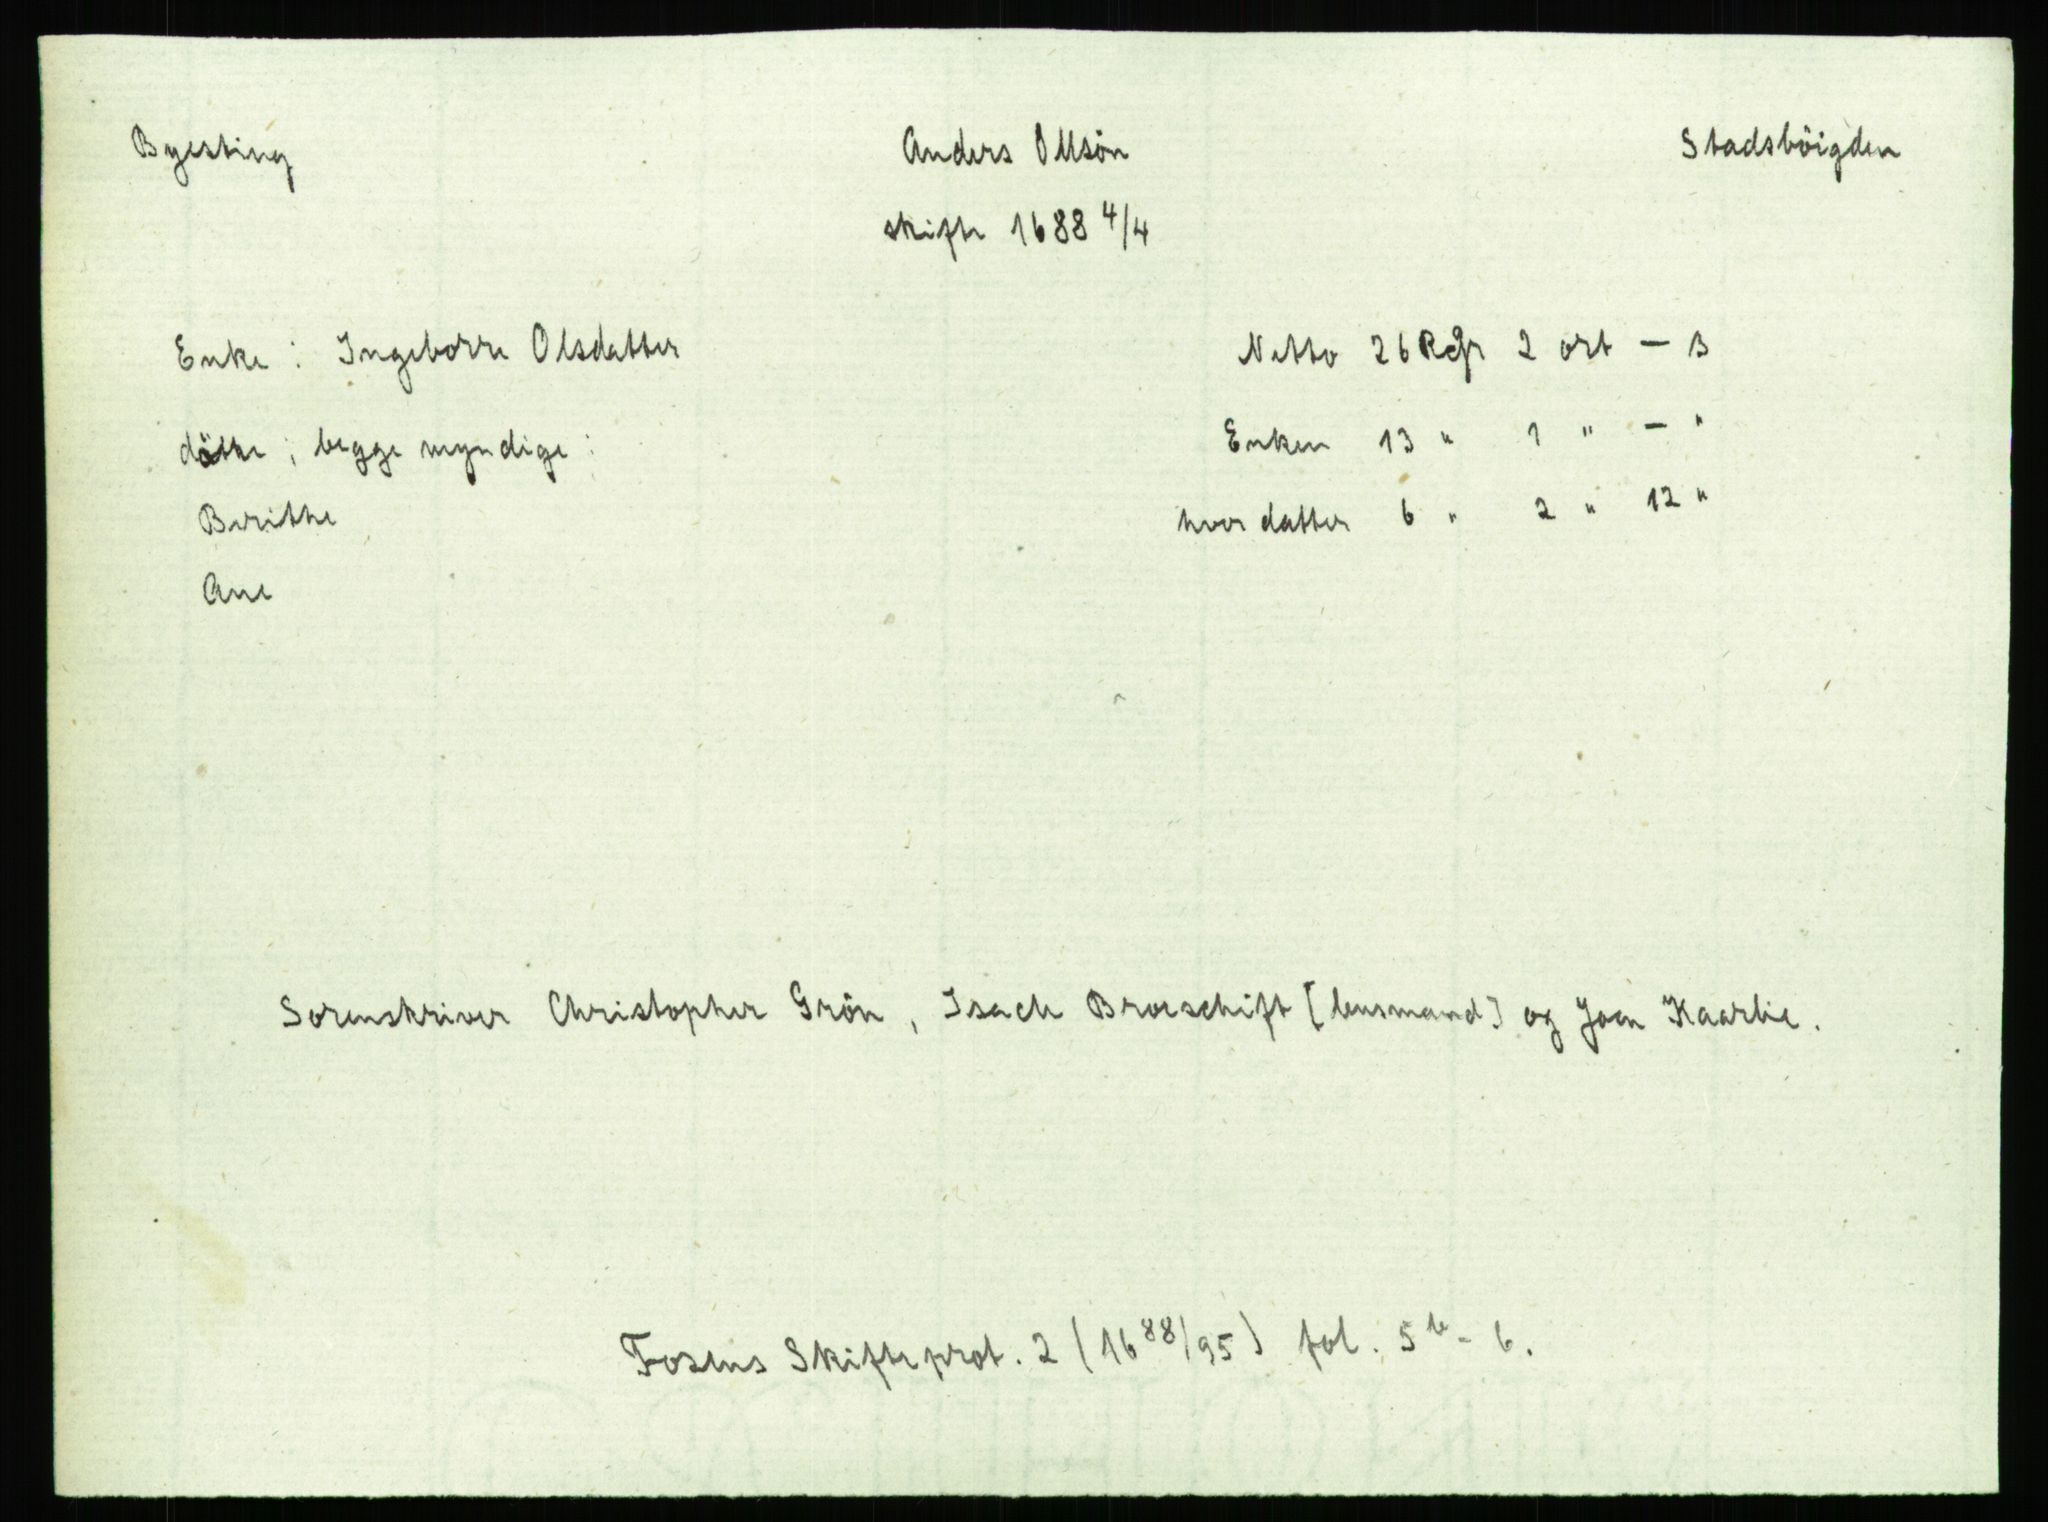 Byesting Anders Ollsön Stadsböigden
skifte 1688 4/4
Enke : Ingeborre Olsdatter Netto 26 Rdr 2 ort — ß
døtre ; begge myndige : Enken 13 " 1 " — "
Berithe hver datter 6 " 2 " 12 "
Ane
Sorenskriver Christopher Grön , Isach Broeschift [lensmand] og Joen Haarlie .
Fosens Skifteprot . 2 ( 16 88/95 ) fol . 5 b - 6 .